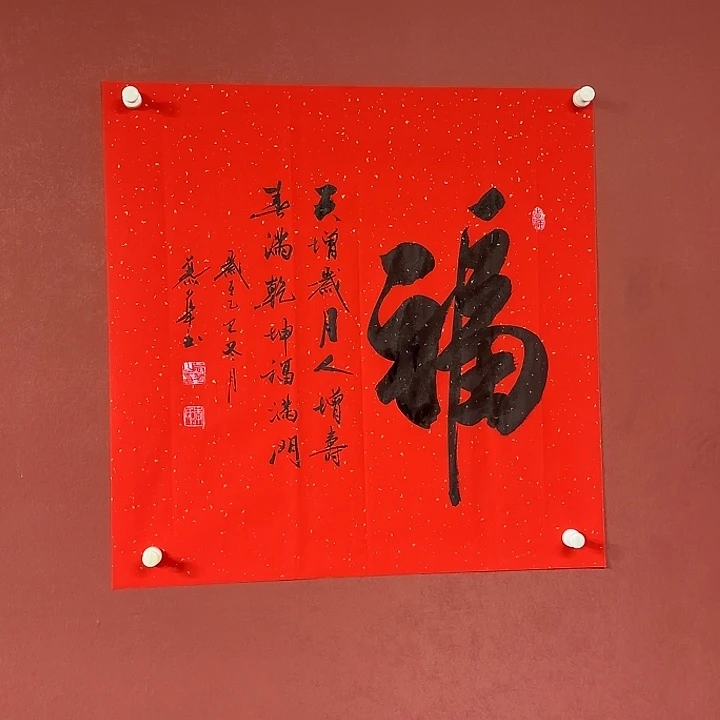 福
天增歲月人增壽
春滿乾坤福滿門
歲在乙巳冬月
燕華书